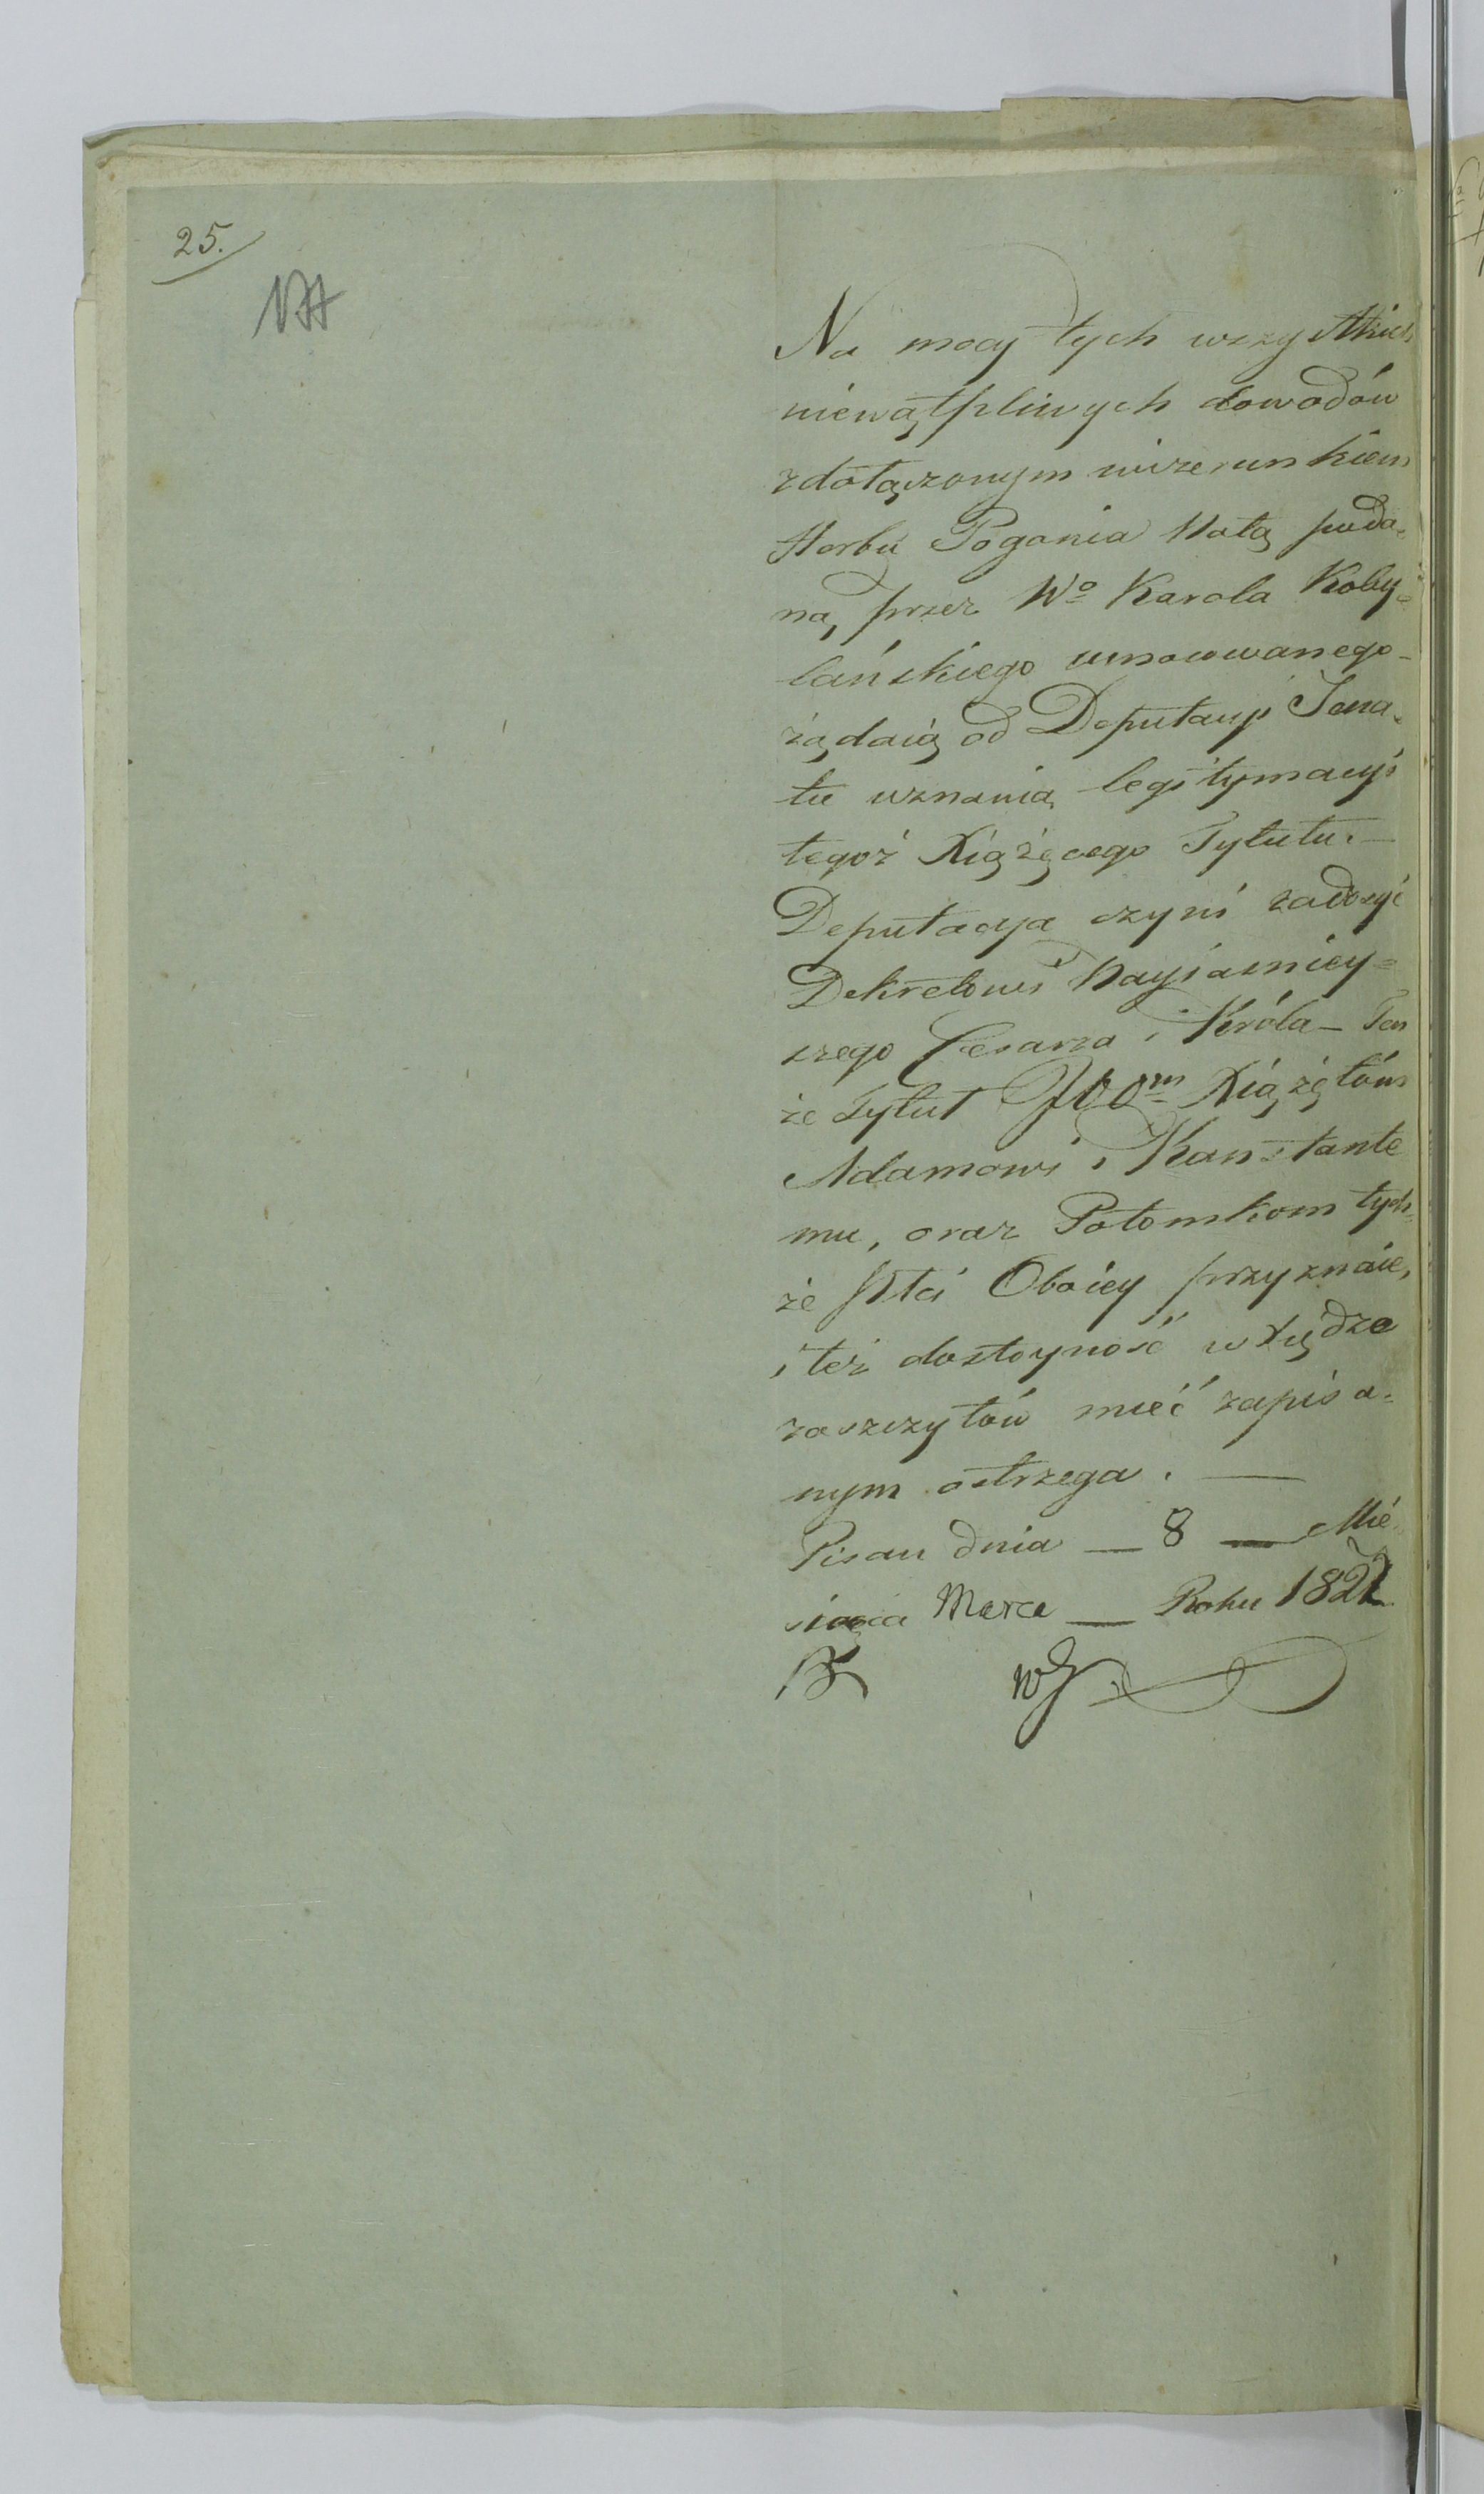 25.
Na mocy tych wszystkich
niewątpliwych dowodów
z dołączonym wizerunkiem
Herbu Pogonia Notą poda=
ną przez Wo Karola Koby=
lańskiego umocowanego
żądaią od Deputacyi Sena=
tu uznania legitymacyi
tegoż Xiążęcego Tytułu. —
Deputacya czyni zadosyć
Dekretowi Nayiaśniey=
szego Cesarza i Króla — Ten
że Tytuł JOOm Xiążętom
Adamowi i Konstante
mu, oraz Potomkom tych=
że Płci Oboiey przyznaie,
i też dostoyność w Xiędze
zaszczytów mieć zapisa=
nym ostrzega. —
Pisan dnia — 8 — Mie
siąca Marca — Roku 182